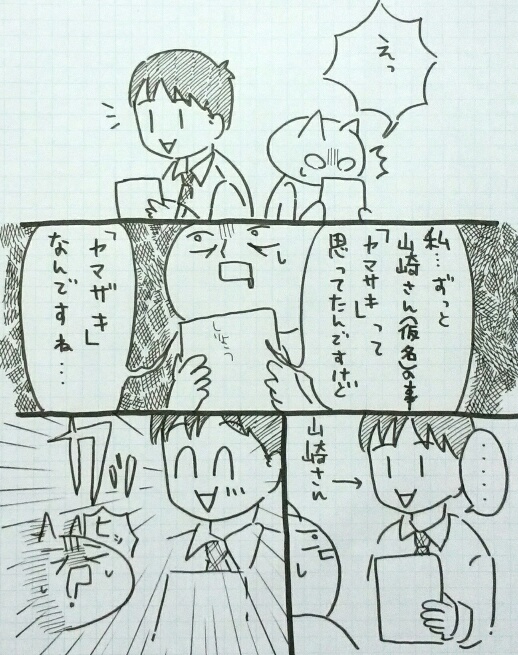 えっ
私…ずっと
山崎さん(仮名)の事
「ヤマサキ」って
思ってたんですけど
「ヤマザキ」
なんですね…
しりょう
……
山崎さん
→
カッ
ヒッ